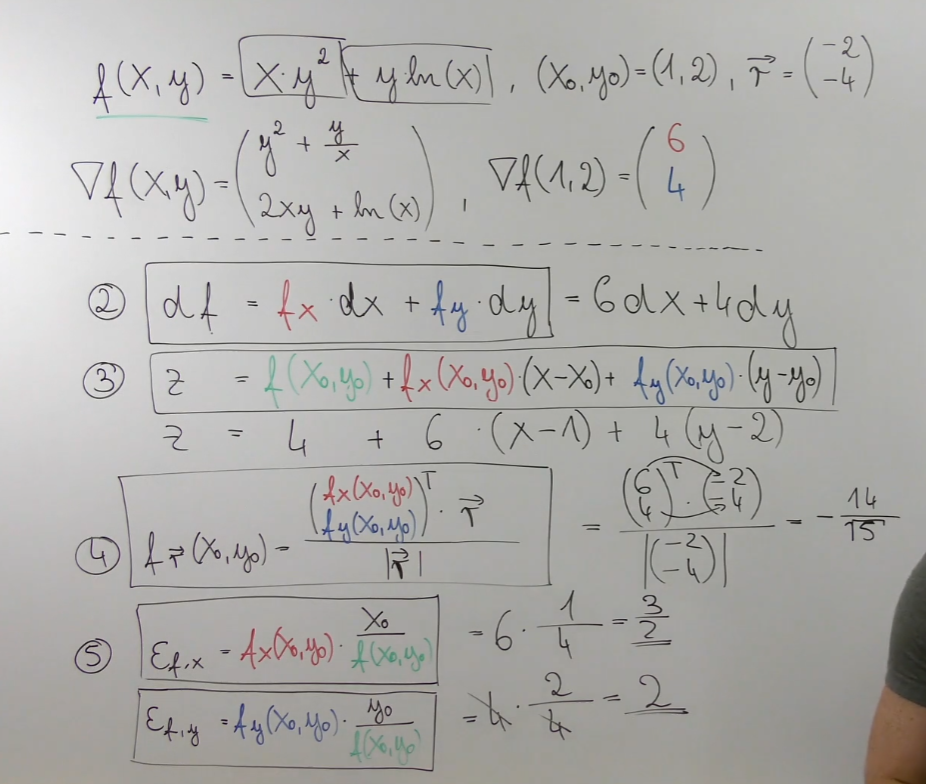 f(x,y) = x·y² + y ln(x) , (x₀,y₀)=(1,2) , r⃗ = (-2 -4)
∇f(x,y) = (y² + y/x 2xy + ln(x)) , ∇f(1,2) = (6 4)
② df = fx · dx + fy · dy = 6dx+4dy
③ z = f(x₀,y₀) + fx(x₀,y₀)·(x-x₀)+ fy(x₀,y₀)·(y-y₀)
z = 4 + 6 ·(x-1) + 4(y-2)
④ f r⃗ (x₀,y₀) = (fx(x₀,y₀) fy(x₀,y₀))ᵀ · r⃗ / |r⃗| = (6 4)ᵀ · (-2 -4) / |(-2 -4)| = - 14/√5
⑤ εf,x = fx(x₀,y₀) · x₀/f(x₀,y₀) = 6 · 1/4 = 3/2
εf,y = fy(x₀,y₀) · y₀/f(x₀,y₀) = 4 · 2/4 = 2